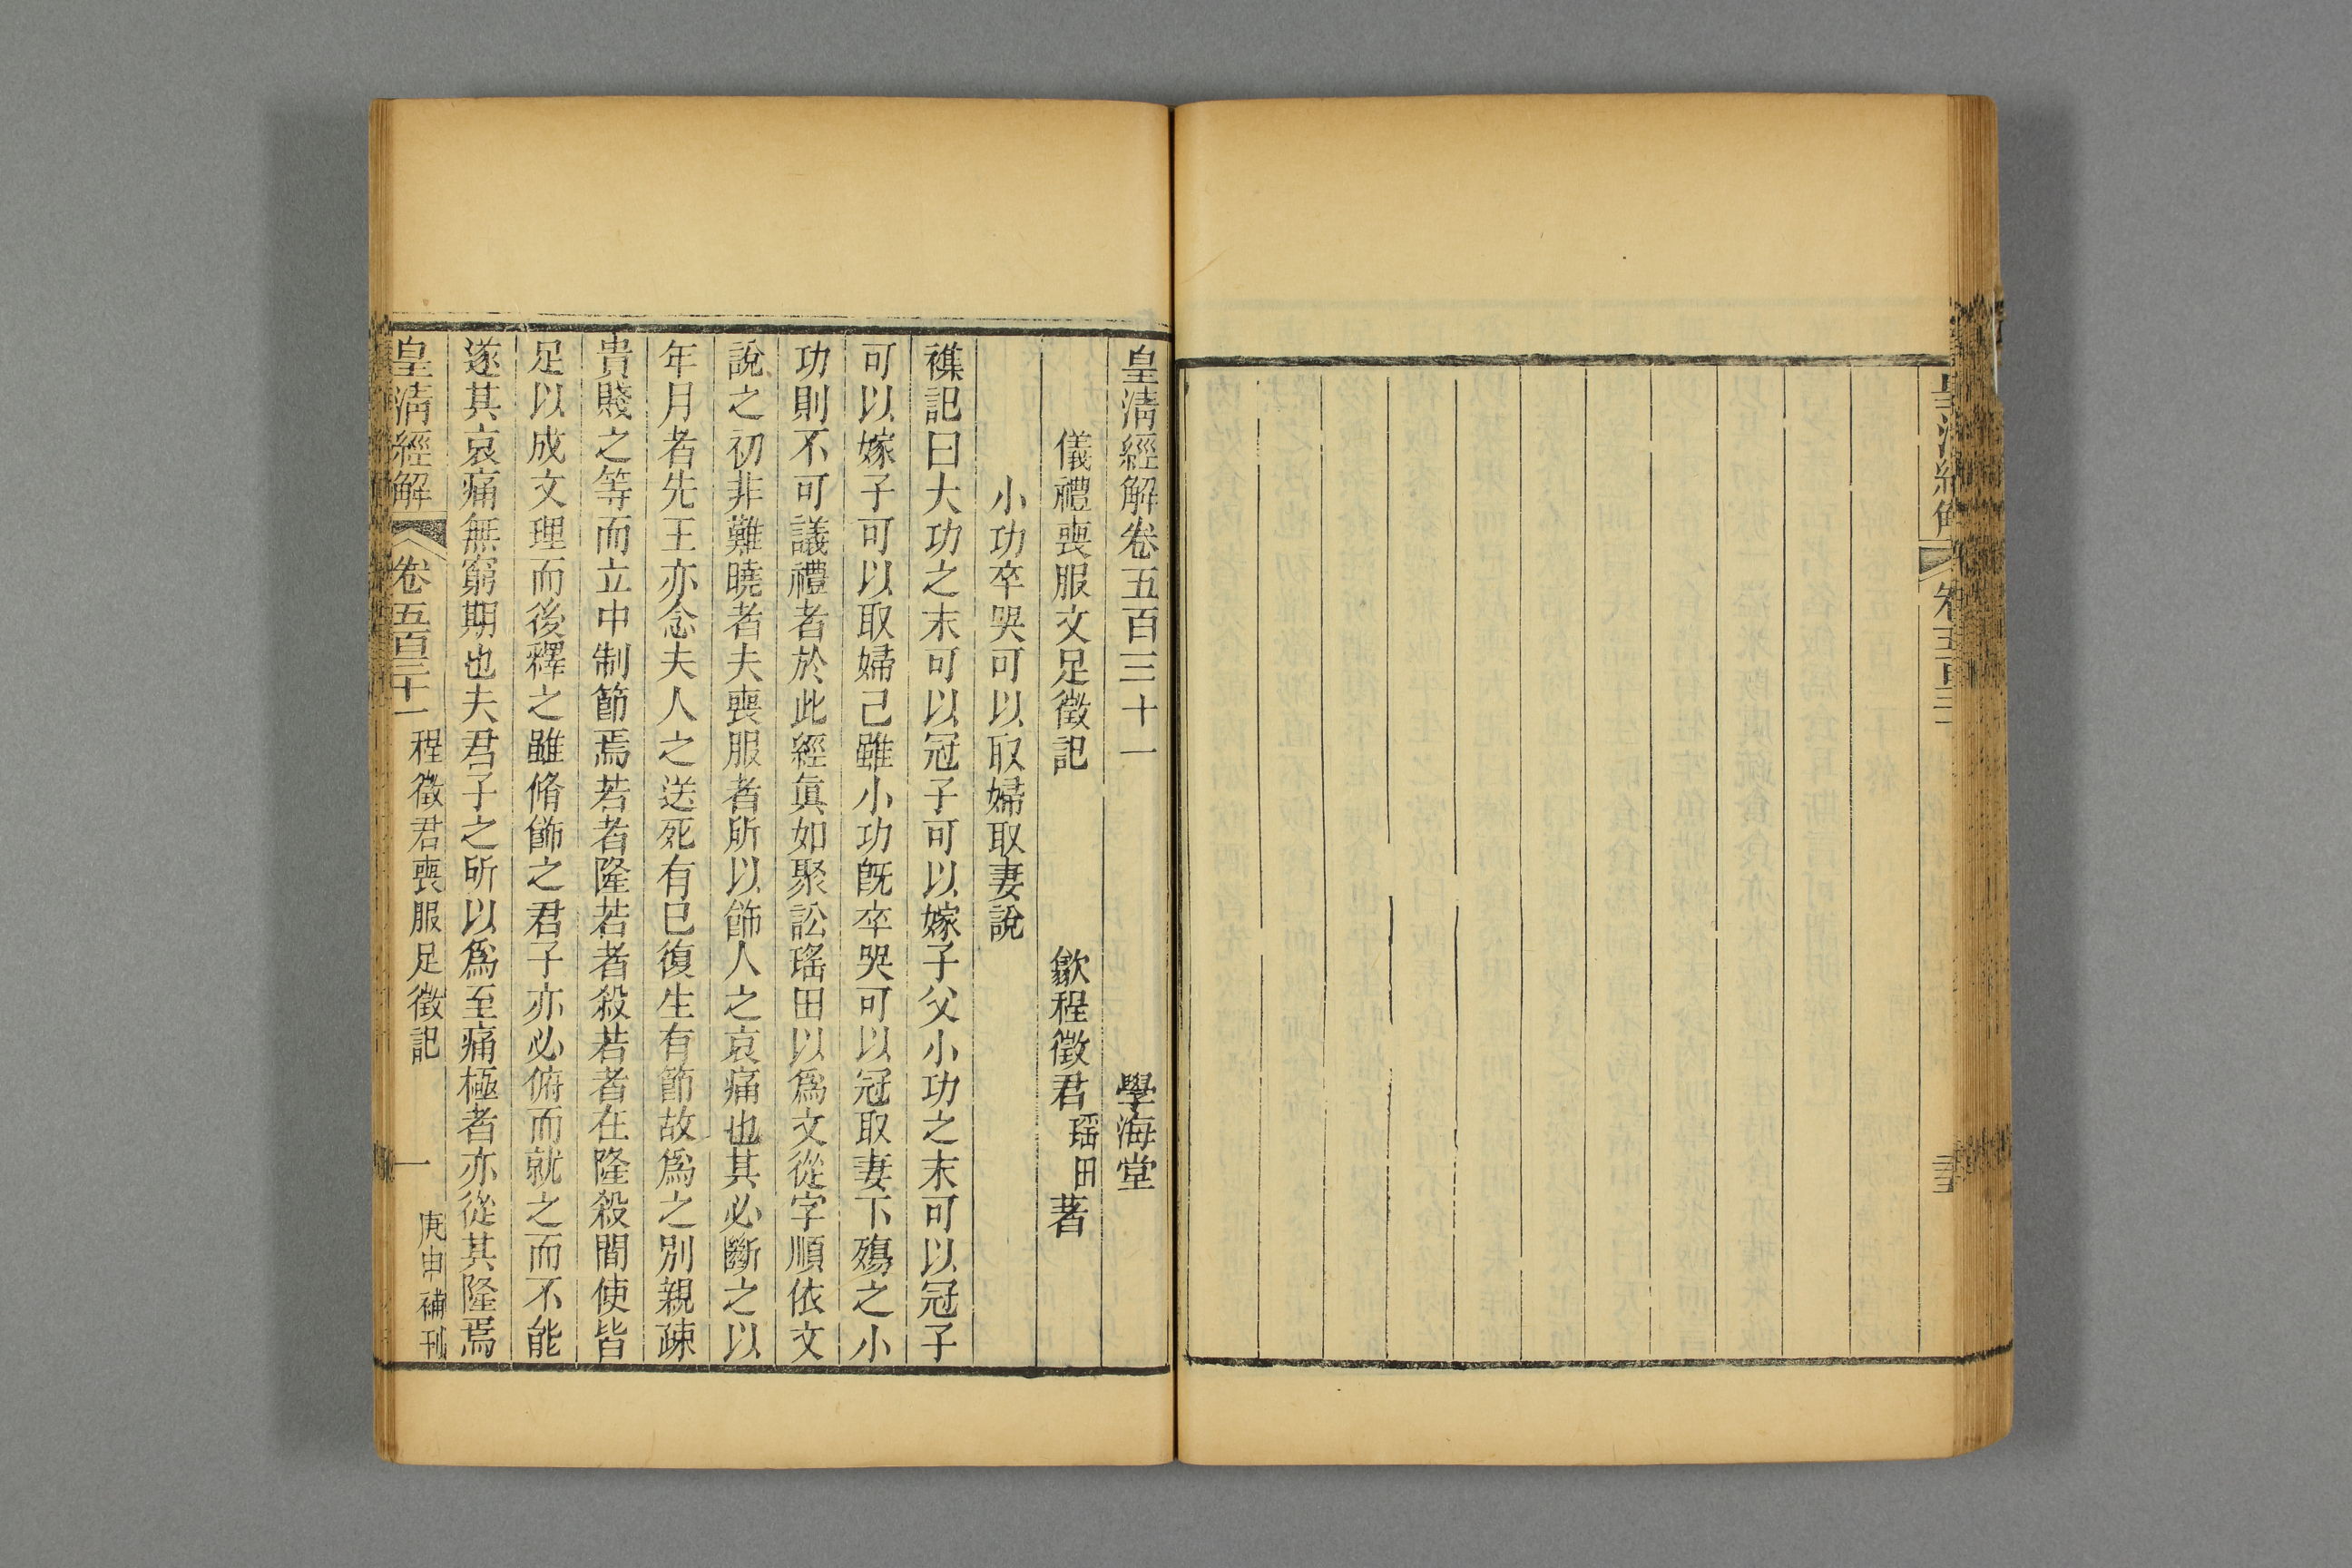 皇清經解卷五百三十一 學海堂
儀禮喪服文足徵記 歙程徵君瑤田著
小功卒哭可以取婦取妻說
襍記曰大功之末可以冠子可以嫁子父小功之末可以冠子
可以嫁子可以取婦己雖小功旣卒哭可以冠取妻下殤之小
功則不可議禮者於此經眞如聚訟瑤田以爲文從字順依文
說之初非難曉者夫喪服者所以飾人之哀痛也其必斷之以
年月者先王亦念夫人之送死有已復生有節故爲之別親疎
貴賤之等而立中制節焉若者隆若者殺若者在隆殺間使皆
足以成文理而後釋之雖脩飾之君子亦必俯而就之而不能
遂其哀痛無窮期也夫君子之所以爲至痛極者亦從其隆焉
皇清經解 卷五百三十一 程徵君喪服足徵記 一 庚申補刊